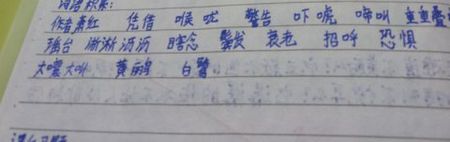 词语积累:
作者萧红 凭借 喉咙 警告 吓唬 啼叫 重重叠
强台 淅淅沥沥 瞎念 鬓发 衰老 招呼 恐惧
大嚷大叫 黄鹂 白鹭